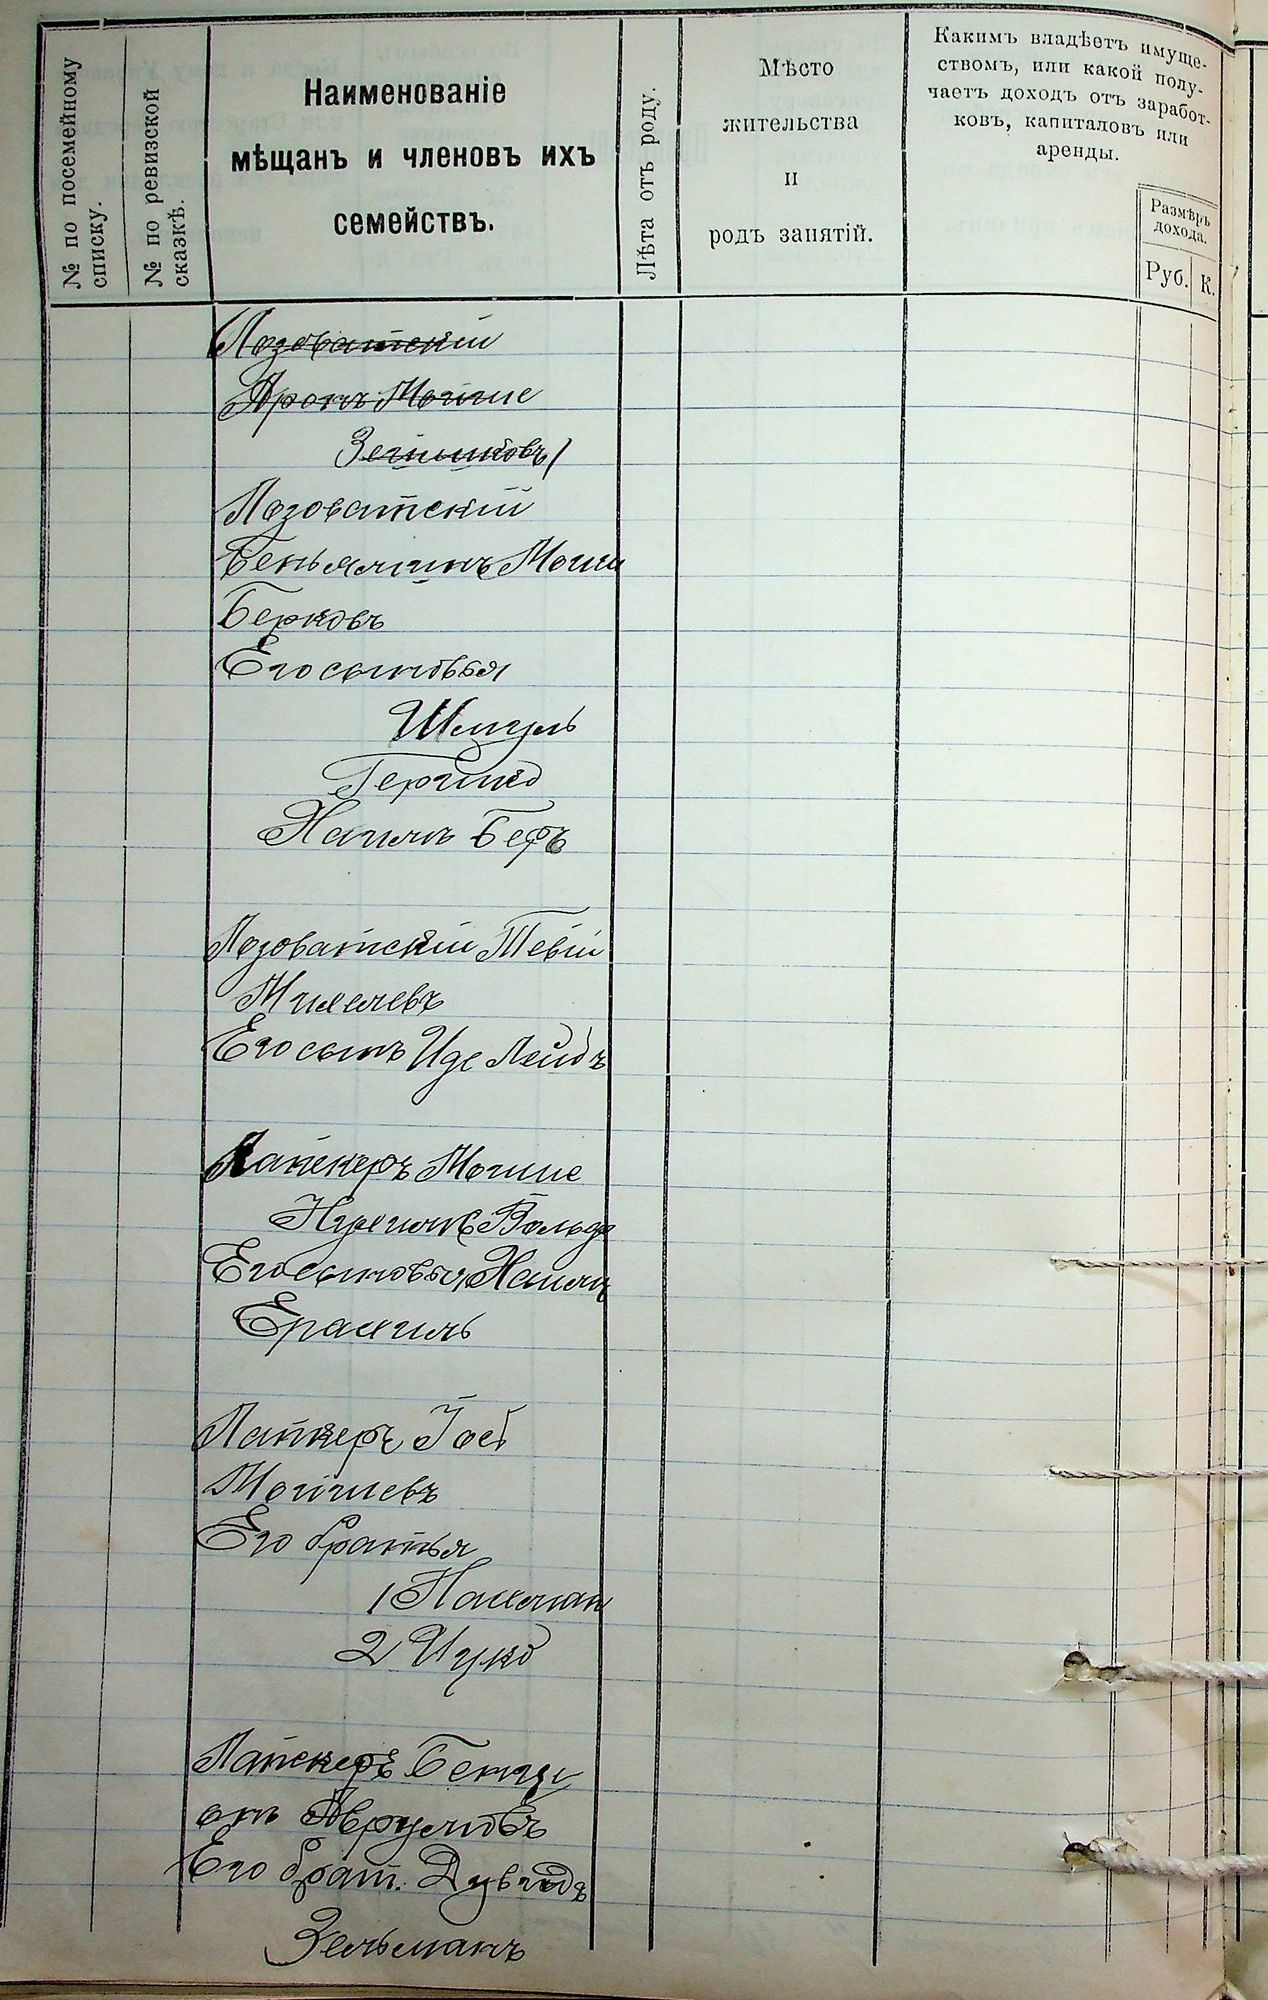 № по посемейному
списку.
№ по ревизской
сказкѣ.
Наименованіе
мѣщанъ и членовъ ихъ
семействъ.
Лѣта отъ роду.
Мѣсто
жительства
и
родъ занятій.
Какимъ владѣетъ имуще-
ствомъ, или какой полу-
чаетъ доходъ отъ заработ-
ковъ, капиталовъ или
аренды.
Размѣръ
дохода.
Руб.
К.
Лозоватскій
Аронъ Мойше
Лозоватскій
Беньяминъ Мошко
Берковъ
Его сыновья
Шмуль
Гершко
Хаимъ Беръ
Лозоватскій Тевій
Михелевъ
Его сынъ Иде Лейбъ
Лапскеръ Мошше
Нухимъ Вольфъ
Его сыновья Хаимъ
Ерахмиль
Лапскеръ Іось
Мойшевъ
Его братья
1 Нахман
2 Ицко
Лапскеръ Бенци
онъ Аврумовъ
Его брат. Дувидъ
Зельманъ